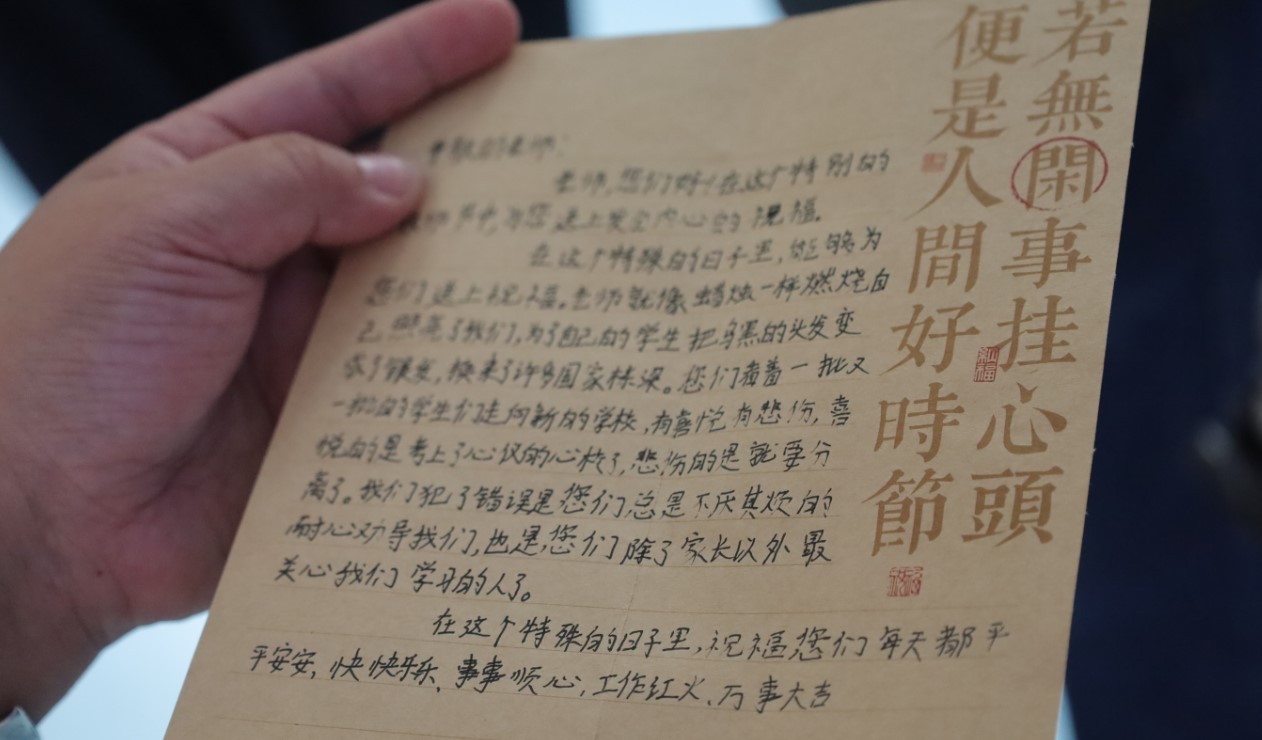 若無閑事挂心頭
便是人間好時節
尊敬的老师:
老师,您们好!在这个特别的
教师节中,为您送上发至内心的祝福。
在这个特殊的日子里,能够为
您们送上祝福。老师就像蜡烛一样燃烧自
己照亮了我们,为了自己的学生把乌黑的头发变
成了银发,换来了许多国家栋梁。您们看着一批又
一批的学生们走向新的学校,有喜悦有悲伤,喜
悦的是考上了心仪的心校了,悲伤的是就要分
离了。我们犯了错误是您们总是不厌其烦的
耐心劝导我们,也是您们除了家长以外最
关心我们学习的人了。
在这个特殊的日子里,祝福您们每天都平
平安安,快快乐乐、事事顺心,工作红火、万事大吉